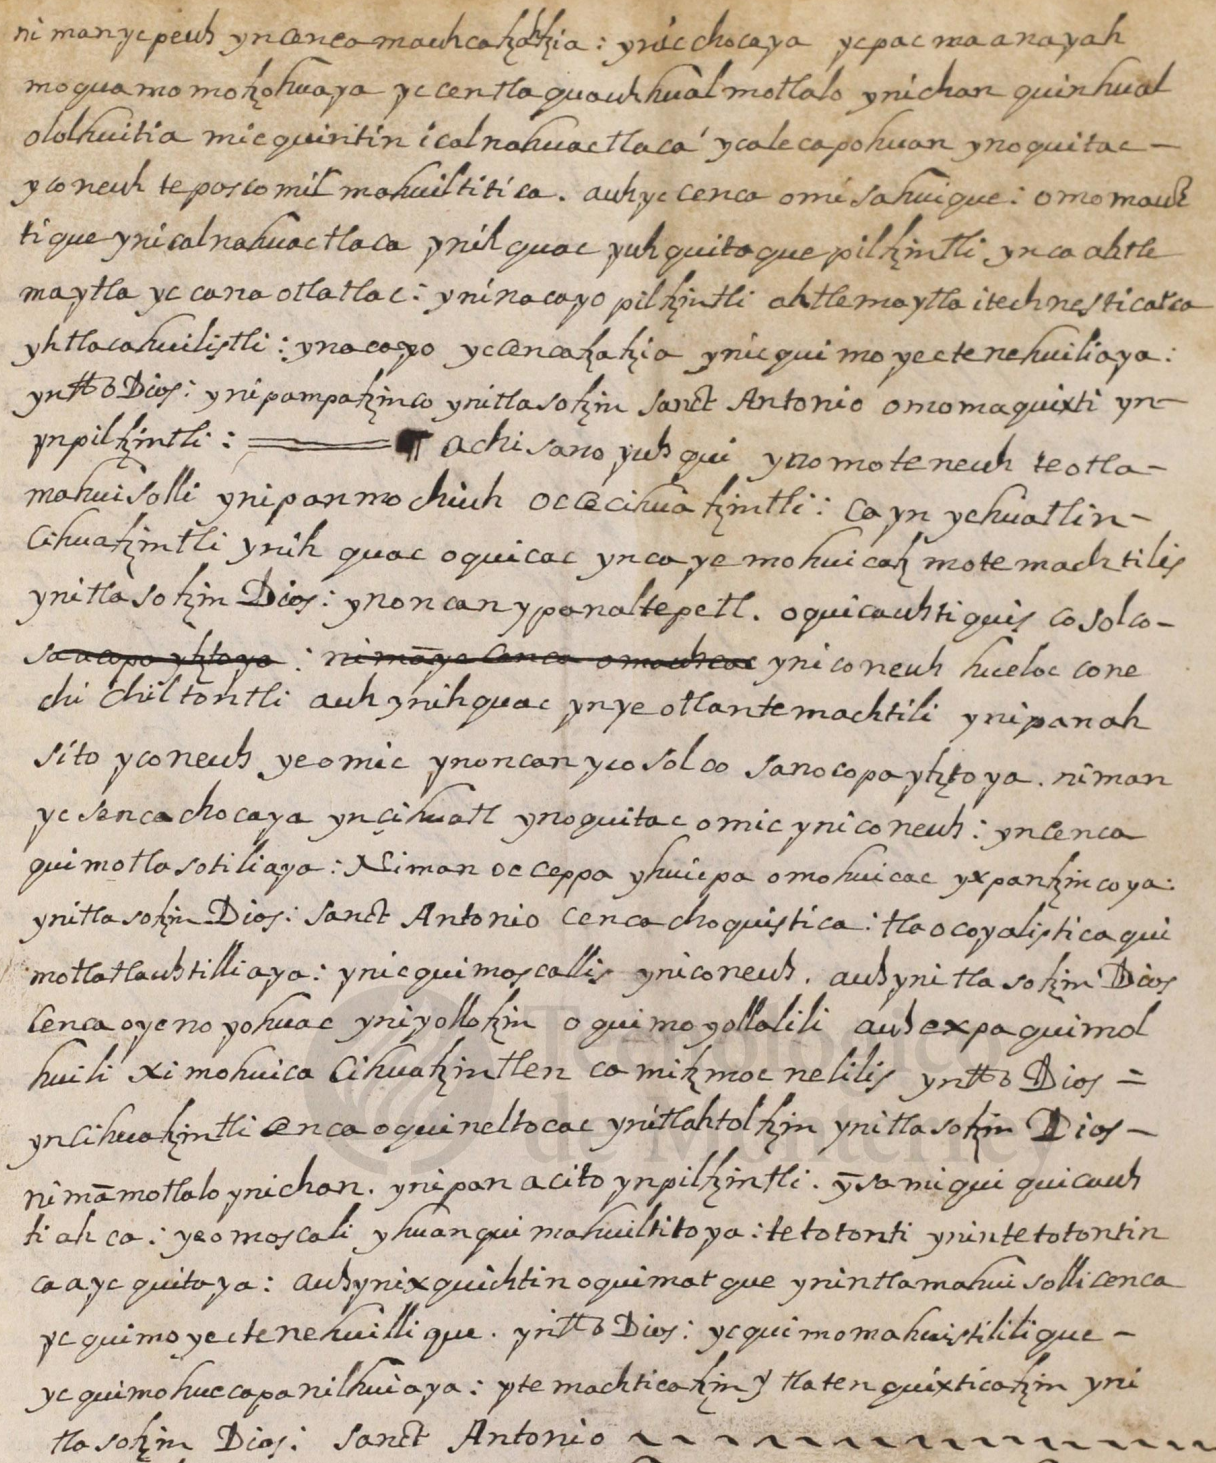 ni man yc peuh yn cenca mauhcatzahtzia : ynic chocaya ycpac maanayah
moquamomotzohuaya yc centlaquauh hualmotlalo ynichan quinhual
ololhuitia miequintin icalnahuactlaca ycalecapohuan ynoquitac –
yconeuh tepos comil mahuiltitica . auh yc cenca omisahuique : omomauh
tique ynicalnahuactlaca ynilquac yuh quitaque piltzintli ynca ahtle
maytla yc cana otlatlac : yninacayo piltzintli ahtle maytla itech nesticatca
yhtlacahuilistli : ynacayo yc cencatzatzia ynic quimoyectenehuiliaya :
yn tto Dios : ynipampatzinco ynitlasotzin Sanct Antonio omomaquixti yn –
ynpiltzintli : ¶ achi sano yuhqui ynomoteneuh teotla –
mahuisolli ynipan mochiuh occe cihuatzintli : Ca yn yehuatl in –
Cihuatzintli ynihquac oquicac ynca ye mohuicatz motemachtilis
ynitlasotzin Dios : ynoncan ypan altepetl . oquicauhtiquis cosolco –
saacopa yhtztoya : nimā yc cenca omauhcac yniconeuh hueloc cone
chichiltontli auh ynihquac ynye otlantemachtili ynipan ah
sito yconeuh ye omic ynoncan ycosolco sanocopa yhtztoya . niman
yc senca chocaya yn çihuatl ynoquitac omic yniconeuh : yn cenca
quimotlasotiliaya : Niman occeppa yhuicpa omohuicac yxpantzincoya :
ynitlasotzin Dios : Sanct Antonio cenca choquistica : tlaocoyalistica qui
motlatlauhtilliaya : ynic quimoscallis yniconeuh . auh ynitlasotzin Dios
Cenca oyc noyohuac yniyollotzin oquimoyollalili auh expa quimol
huili Ximohuica Cihuatzintlen ca mitzmocnelilis yn tto Dios =
yn cihuatzintli cenca oquineltocac ynitlahtoltzin ynitlasotzin Dios –
nimā motlalo ynichan . ynipan acito ynpiltzintli . ȳ sa miqui quicauh
tiahca : ye omoscali yhuan quimahuiltitoya : tetotonti ynin tetotontin
ca ayc quitaya : auh ynixquichtin oquimatque ynin tlamahuisolli cenca
yc quimoyectenehuillique . yn tto Dios : yc quimomahuistililique –
yc quimohuecapanilhuiaya : ytemachticatzin y tlatenquixticatzin yni
tlasotzin Dios : Sanct Antonio